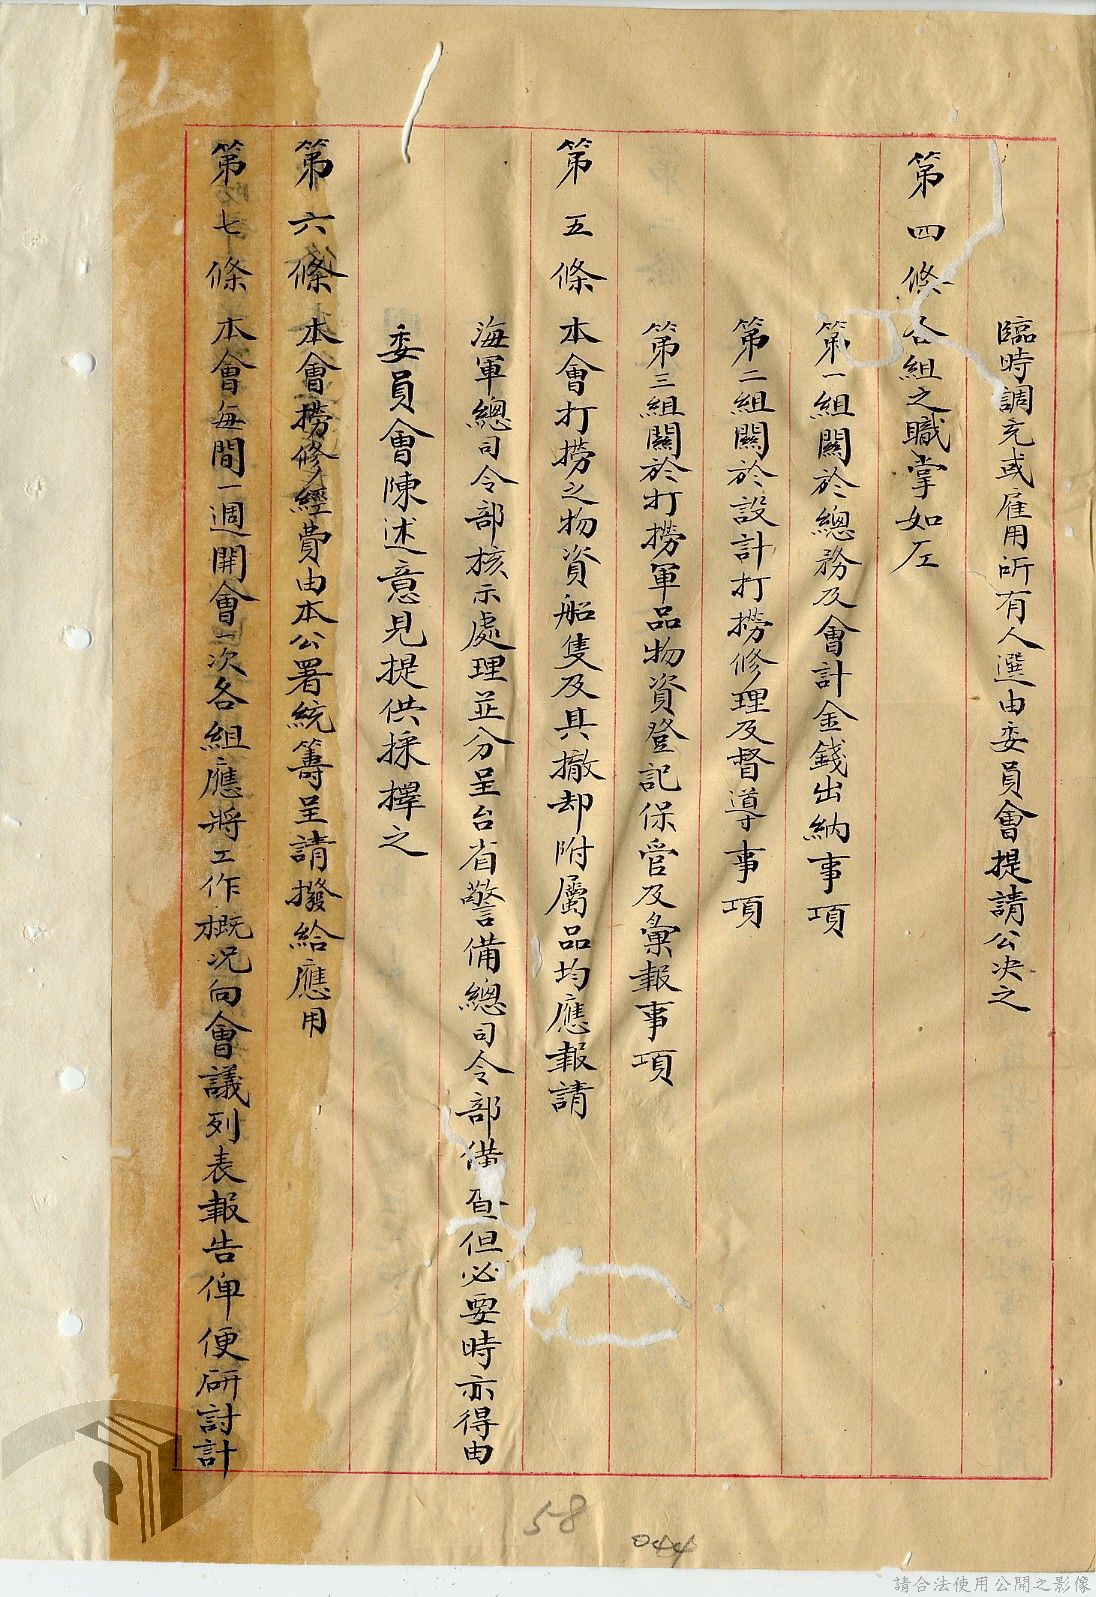 臨時調充或雇用所有人選由委員會提請公决之
第四條 各組之職掌如左
第一組關於總務及會計金錢出納事項
第二組關於設計打撈修理及督導事項
第三組關於打撈軍品物資登記保管及彙報事項
第五條 本會打撈之物資船隻及具撤却附屬品均應報請
海軍總司令部核示處理並分呈台省警備總司令部備查但必要時亦得由
委員會陳述意見提供採擇之
第六條 本會撈修經費由本公署統籌呈請撥給應用
第七條 本會每間一週開會一次各組應將工作概况向會議列表報告俾便研討計
58
044
請合法使用公開之影像